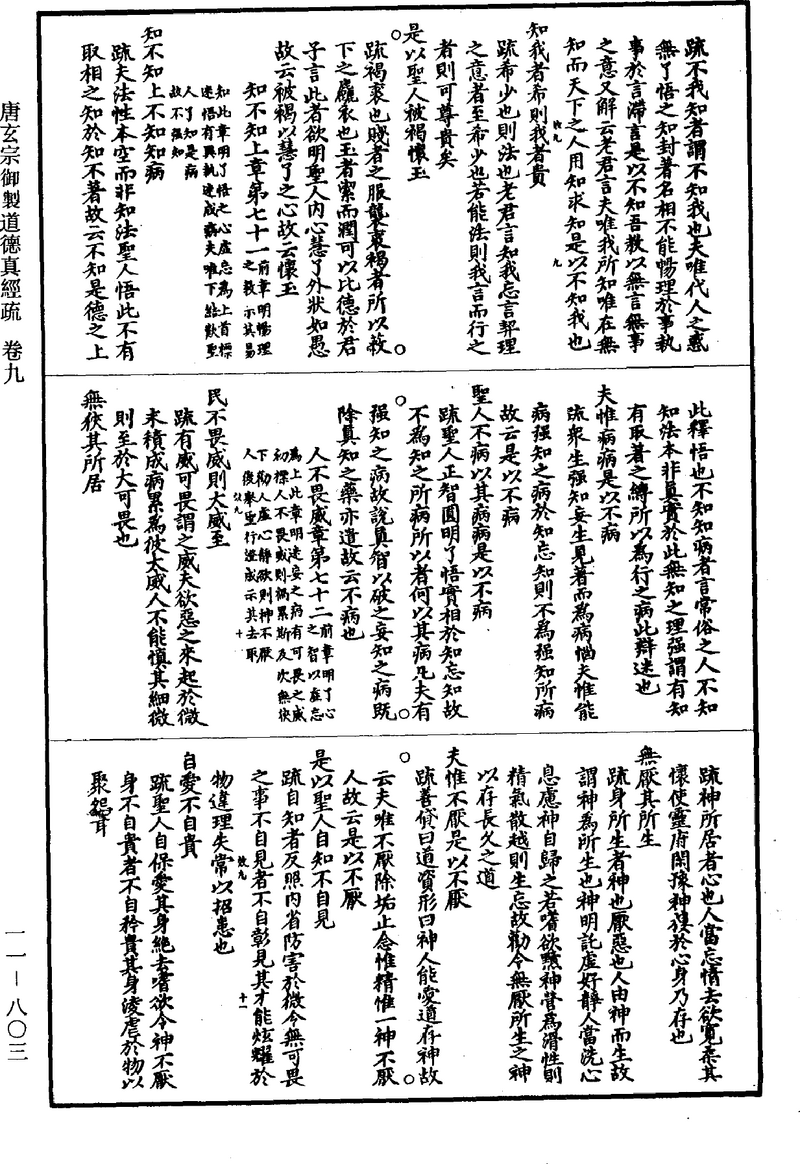 疏不我知者謂不知我也夫唯代人之惑
無了悟之知封著名相不能暢理於事執
事於言滯言是以不知吾教以無言無事
之意又解云老君言夫唯我所知唯在無
知而天下之人用知求知是以不知我也
知我者希則我者貴
疏希少也則法也老君言知我忘言契理
之意者至希少也若能法則我言而行之
者則可尊貴矣
是以聖人被褐懷玉
疏褐裘也賤者之服龍裘褐者所以蔽
下之麤衣也玉者絜而潤可以比德於君
子言此者欲明聖人內心慧了外狀如愚
故云被褐以慧了之心故云懷玉
知不知上章第七十一前章明暢理之教示其易
知此章明了悟之心虛忘為上首標
迷悟有異執迷成病夫唯下結歎聖
人了知是病
故不强知
知不知上不知知病
疏夫法性本空而非知法聖人悟此不有
取相之知於知不著故云不知是德之上
此釋悟也不知知病者言常俗之人不知
知法本非真實於此無知之理强謂有知
有取著之縛所以為行之病此辯迷也
夫惟病病是以不病
疏眾生强知妄生見著而為病惱夫惟能
病强知之病於知忘知則不為强知所病
故云是以不病
聖人不病以其病病是以不病
疏聖人正智圓明了悟實相於知忘知故
不為知之所病所以者何以其病凡夫有
强知之病故說真智以破之妄知之病既
除真知之藥亦遣故云不病也
人不畏威章第七十二前章明了心之智以虛忘
為上此章明迷妄之病有可畏之威
初標人不畏威則禍累斯及次無狹
下勸人虛心靜欲則神不厭
人後舉聖行證成示其去取
民不畏威則大威至
疏有威可畏謂之威夫欲惡之來起於微
末積成病累為彼大威人不能慎其細微
則至於大可畏也
無狹其所居
疏神所居者心也人當忘情去欲寬柔其
懷使靈府閑豫神棲於心身乃存也
無厭其所生
疏身所生者神也厭惡也人由神而生故
謂神為所生也神明託虛好靜人當洗心
息慮神自歸之若嗜欲黷神營為滑性則
精氣散越則生忘故勸令無厭所生之神
以存長久之道
夫惟不厭是以不厭
疏善貸曰道資形曰神人能愛道存神故
云夫唯不厭除垢止念惟精惟一神不厭
人故云是以不厭
是以聖人自知不自見
疏自知者反照內省防害於微令無可畏
之事不自見者不自彰見其才能炫耀於
物違理失常以招患也
自愛不自貴
疏聖人自保愛其身絶去嗜欲令神不厭
身不自貴者不自矜貴其身淩虐於物以
聚怨耳
唐玄宗御製道德真經疏 卷九
一一－八〇三